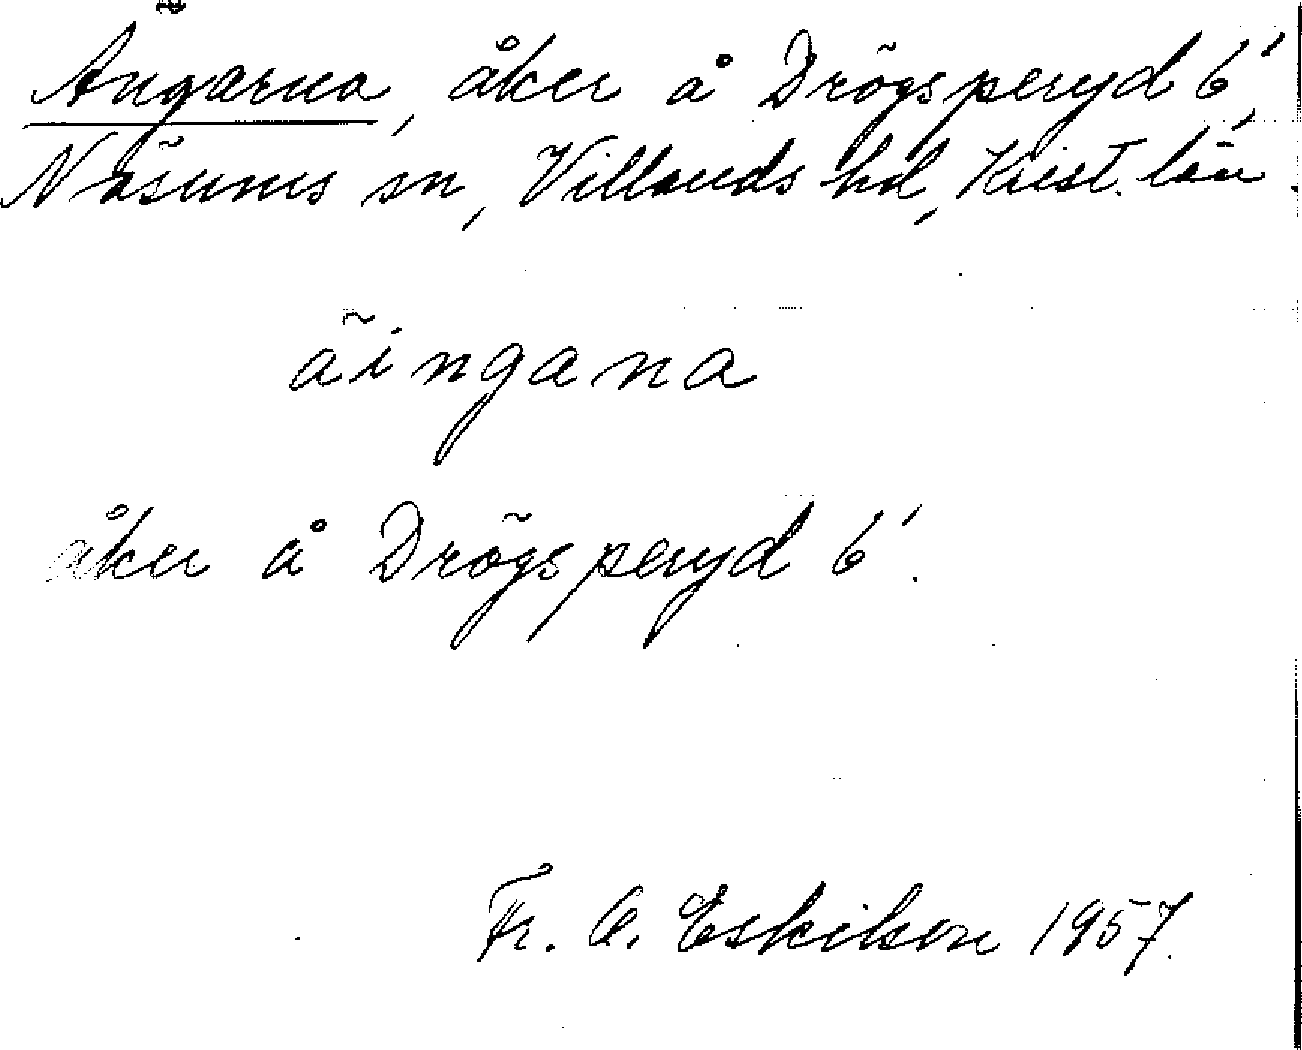 Ängarna, åker å Drögsperyd 6¹,
Näsums sn, Villands hd, Krist. län.
äingana
åker å Drögsperyd 6¹.
Fr. O. Eskilson 1957.